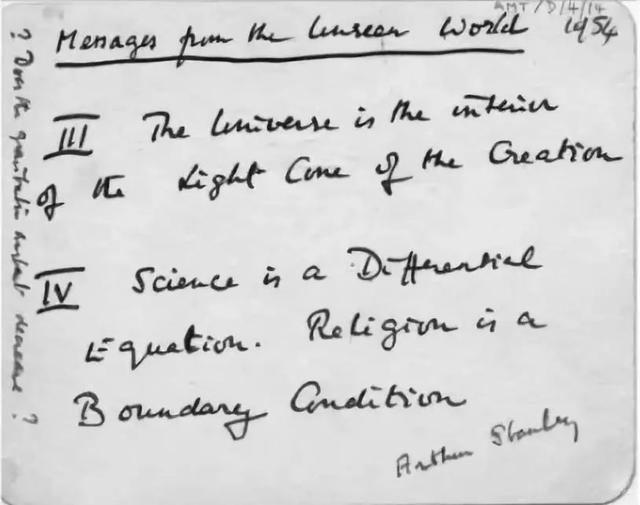 AMT/D/4/14
Messages from the Unseen World 1954
III The Universe is the interior
of the Light Cone of the Creation
IV Science is a Differential
Equation. Religion is a
Boundary Condition
Arthur Stanley
? Does the gravitation constant decrease ?